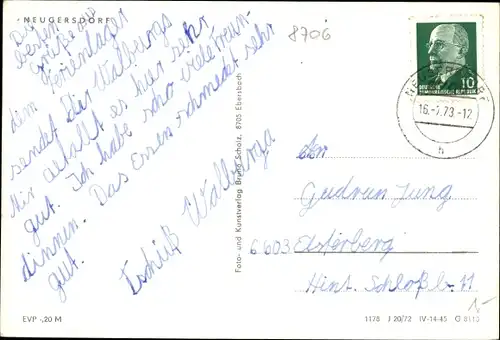 NEUGERSDORF
8706
Die
besten
Grüße aus
dem Ferienlager
sendet Dir Walburga
Mir gefällt es hier sehr
gut. Ich habe scho viele Freun-
dinnen. Das Essen schmeckt sehr
gut.
Tschüß Walburga
Foto- und Kunstverlag Bruno Scholz, 8705 Ebersbach
10
DEUTSCHE
DEMOKRATISCHE REPUBLIK
16.-7.73.-12
h
An
Gudrun Jung
6603 Elsterberg
Hint. Schloßb. 11
1-
EVP -,20 M
1178 J 20/72 IV-14-45 G 8113